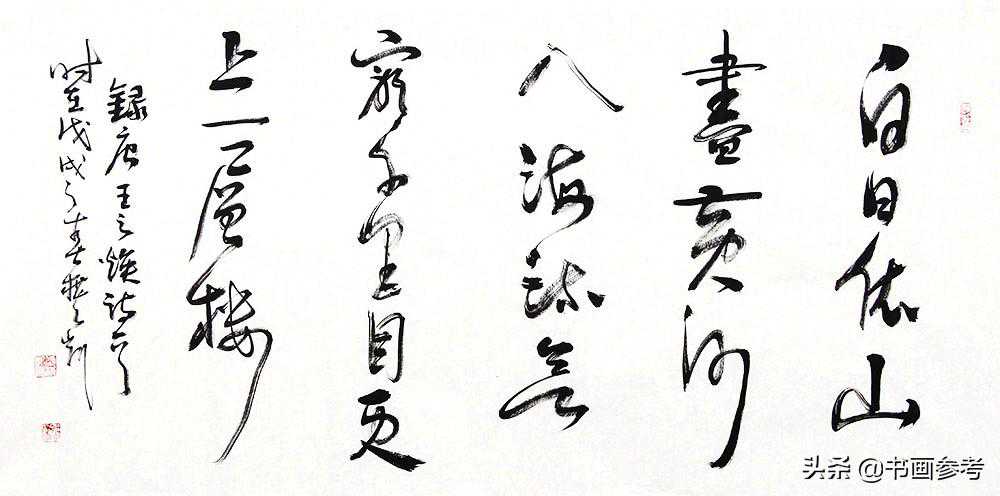 白日依山
盡黄河
入海流欲
窮千里目更
上一層樓
録唐王之焕诗
时在戊戌之春
头条 @书画参考